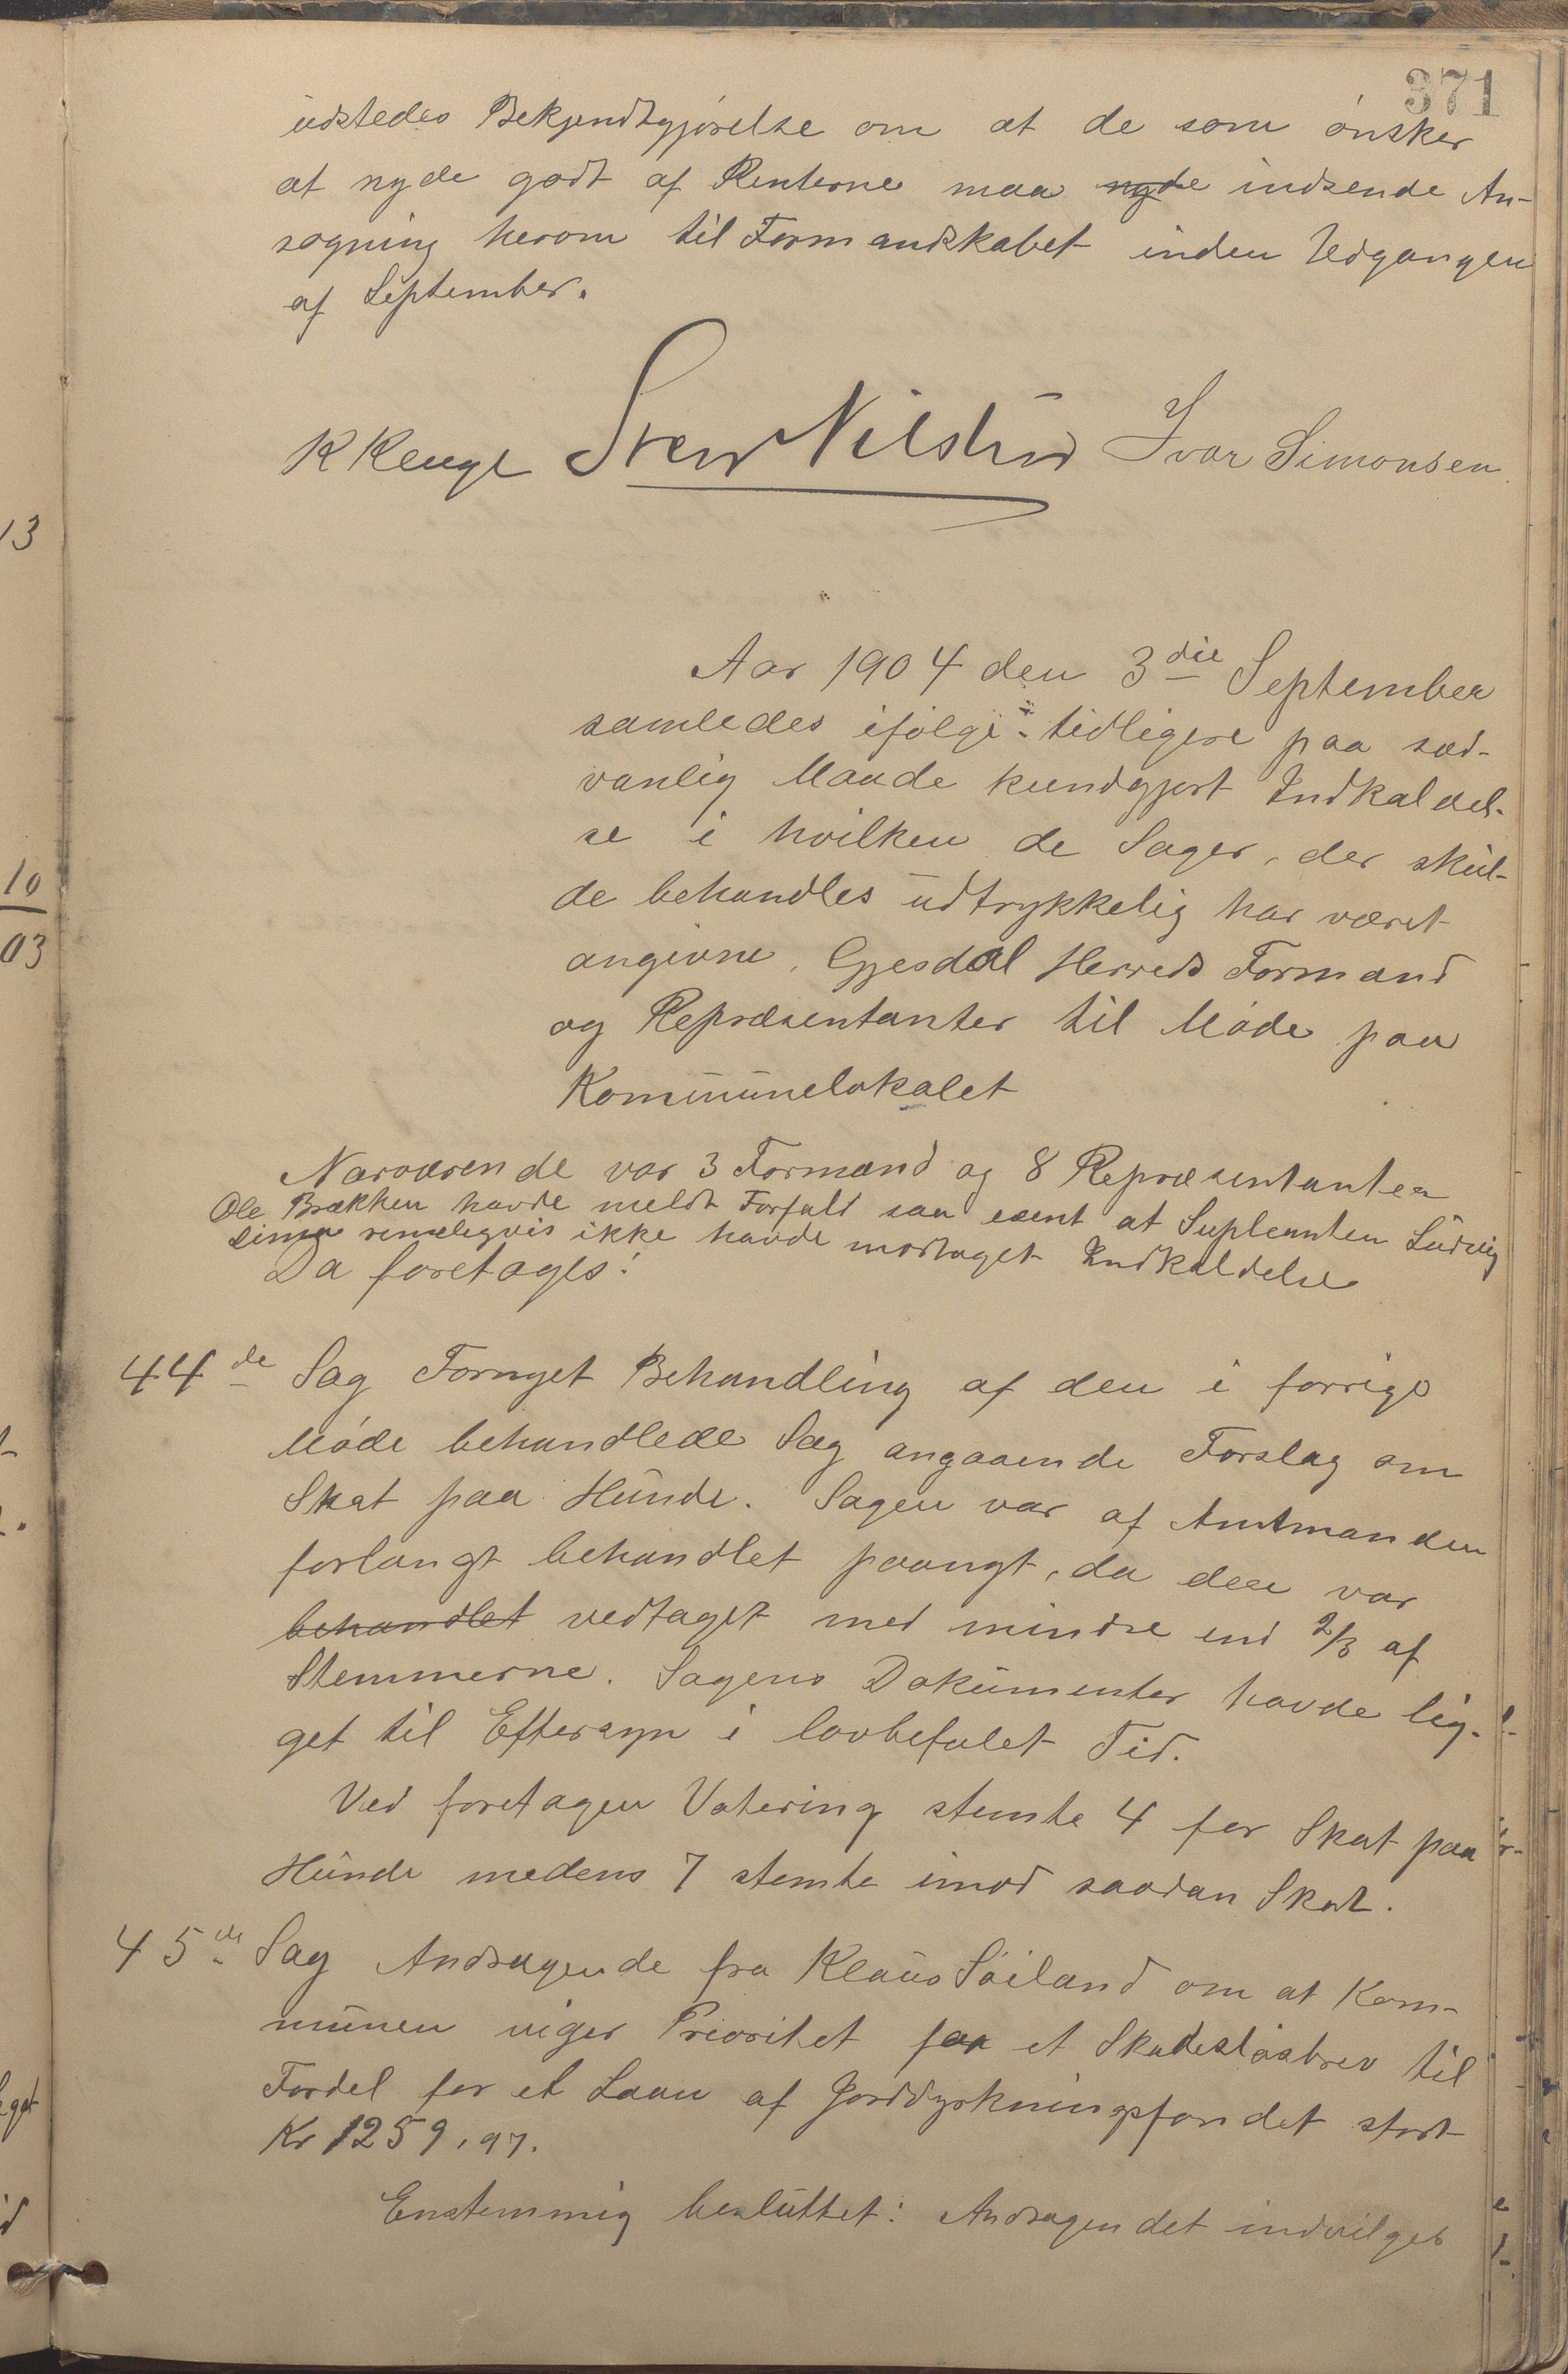 371
udstedes Bekjendtgjørelse om at de som ønsker
at nyde godt af Renterne maa nyde indsende An-
søgning herom til Formandskabet inden Udgangen
af September.
K Kenge Sven Nilsen Ivar Simonsen
Aar 1904 den 3die September
samledes ifølge tidligere paa sæd-
vanlig Maade kundgjort Indkaldel-
se i hvilken de Sager, der skul-
de behandles udtrykkelig har været
angivne, Gjesdal Herreds Formænd
og Repræsentanter til Møde paa
Kommunelokalet
Nærværende var 3 Formænd og 8 Repræsentanter
Ole Brækken havde meldt Forfald saa sent at Supleanten Ludvig
Lima rimeligvis ikke havde modtaget Indkaldelse
Da foretages:
44de Sag Fornyet Behandling af den i forrige
Møde behandlede Sag angaaende Forslag om
Skat paa Hunde. Sagen var af Amtmanden
forlangt behandlet paanyt, da den var
behandlet vedtaget med mindre end 2/3 af
Stemmerne. Sagens Dokumenter havde lig-
get til Eftersyn i lovbefalet Tid.
Ved foretagen Votering stemte 4 for Skat paa
Hunde medens 7 stemte imod saadan Skat.
45de Sag Andragende fra Klaus Søiland om at Kom-
munen viger Prioritet for et Skadesløsbrev til
Fordel for et Laan af Jorddyrkningsfondet stort
Kr 1259,97.
Enstemmig besluttet: Andragendet indvilges
13
10
03